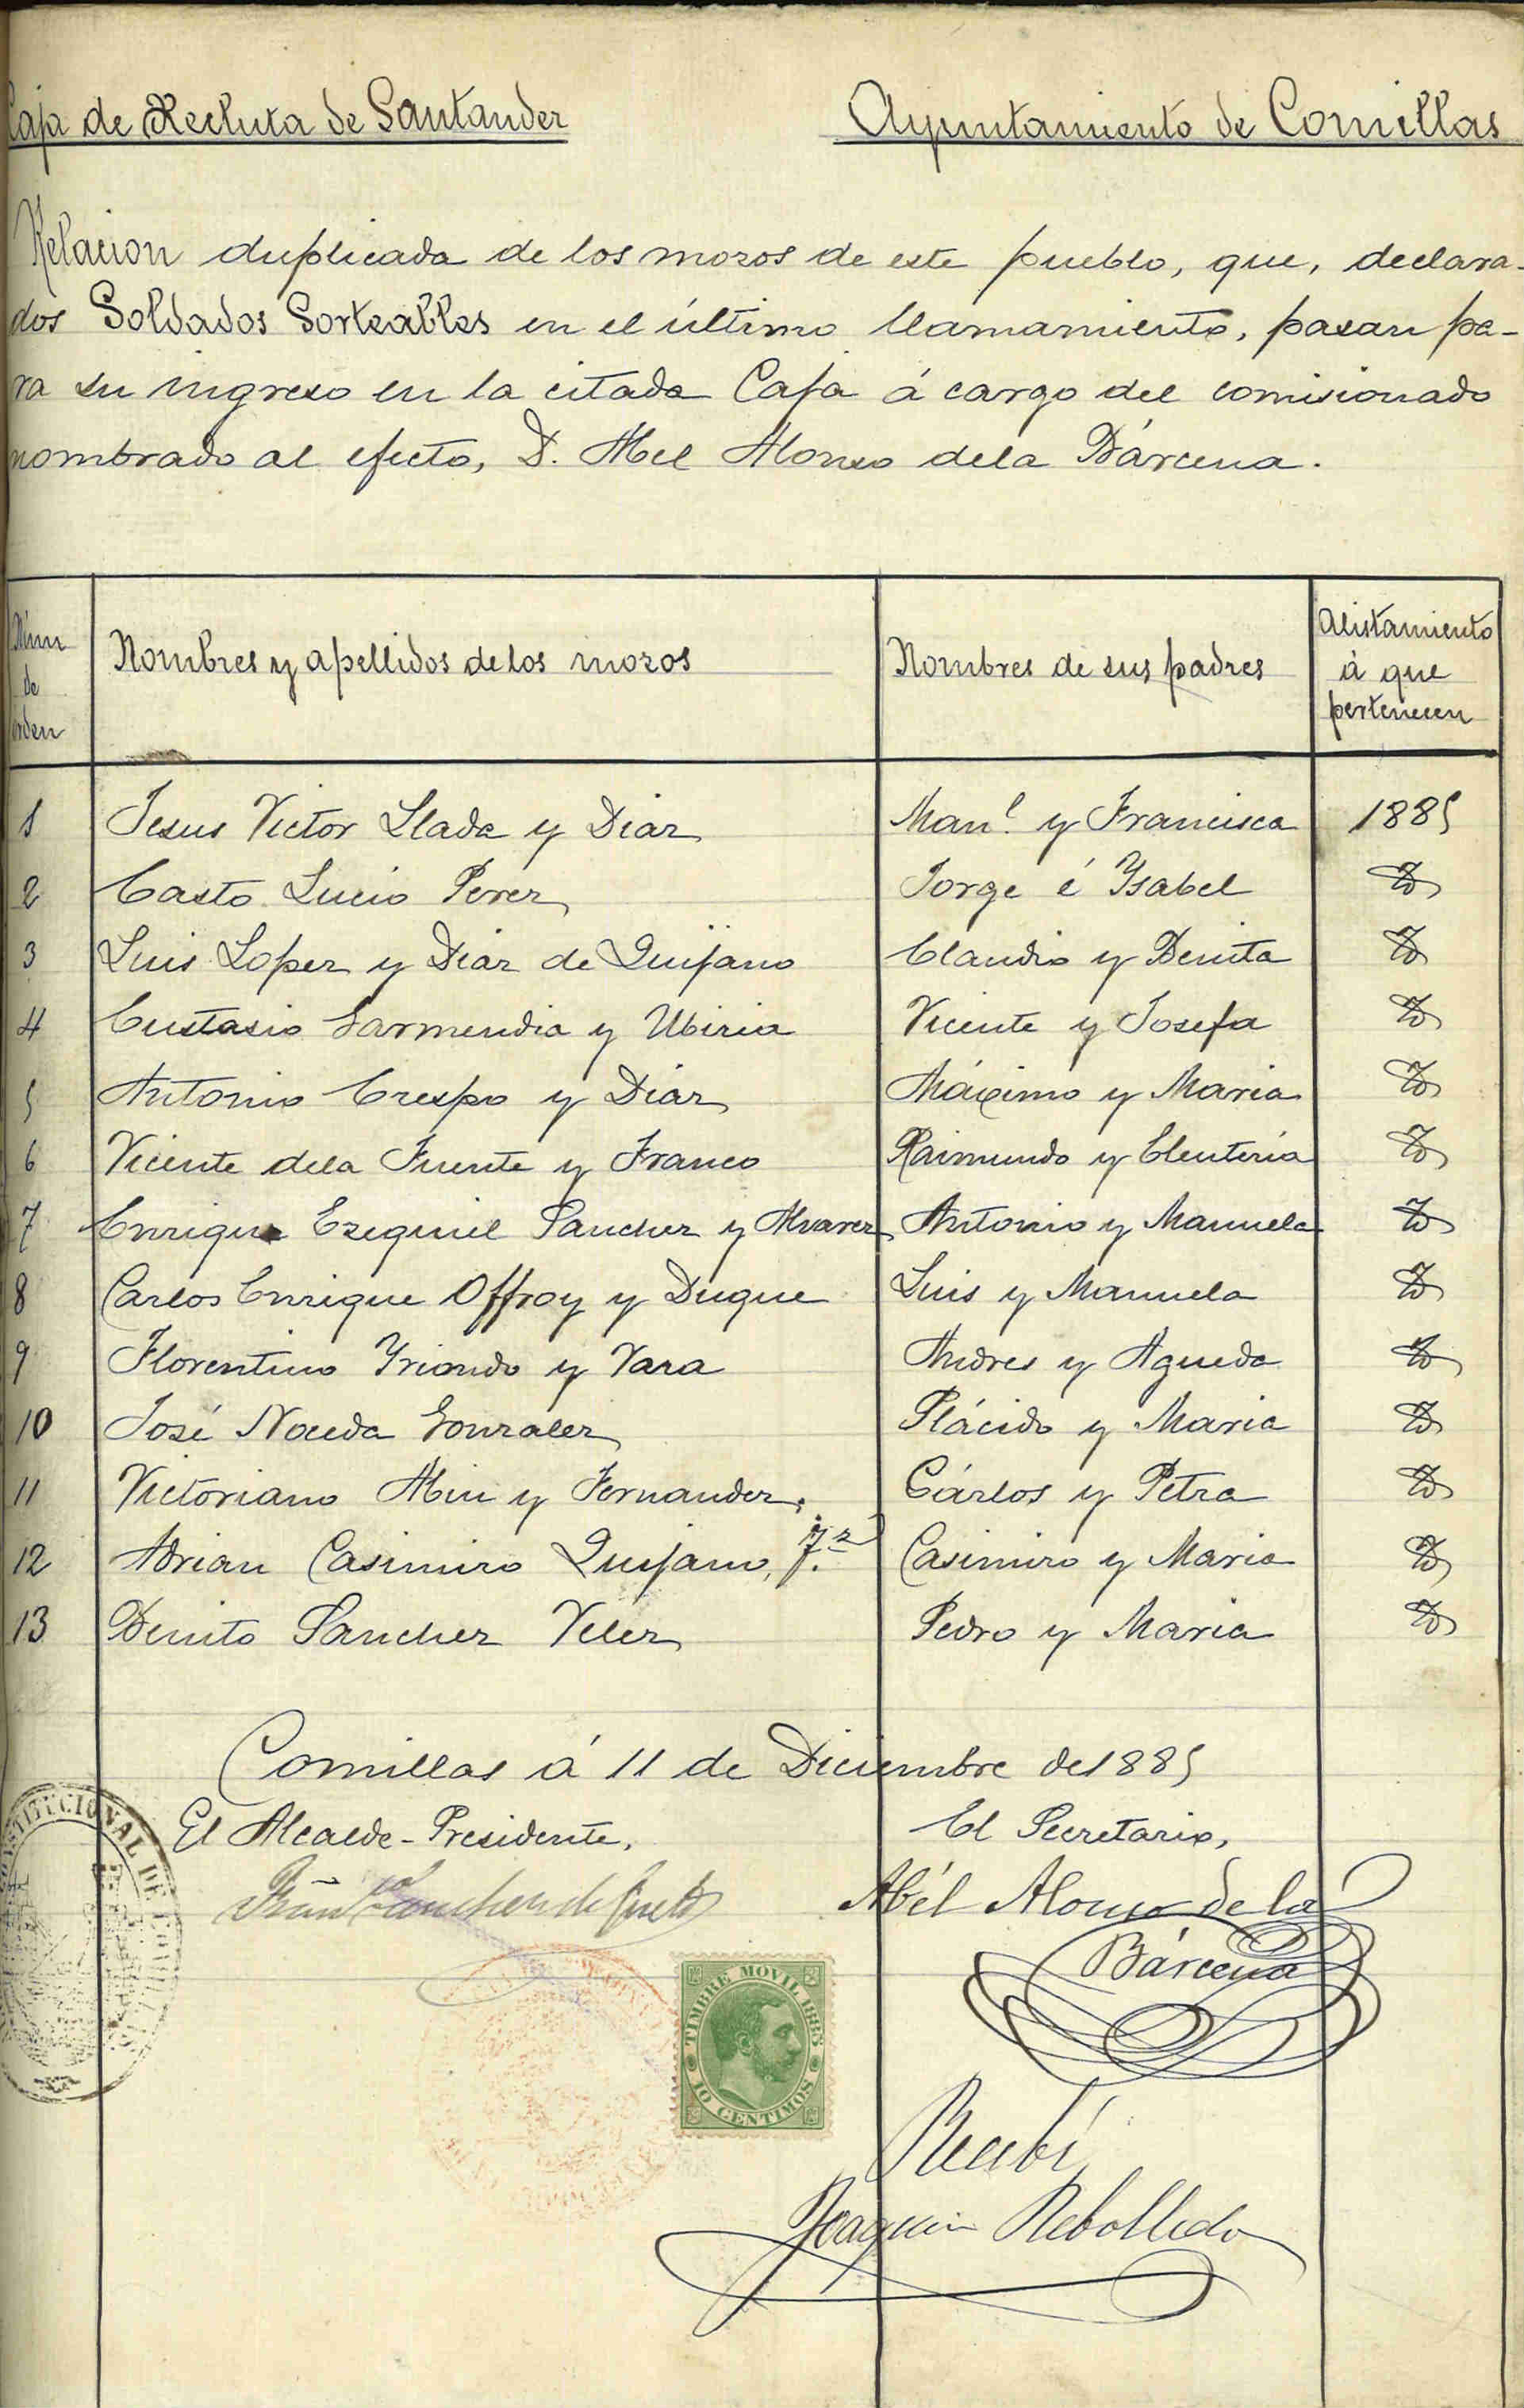 Caja de Recluta de Santander
Ayuntamiento de Comillas
Relacion duplicada de los mozos de este pueblo, que, declara-
dos Soldados Sorteables en el último llamamiento, pasan pa-
ra su ingreso en la citada Caja á cargo del comisionado
nombrado al efecto, D. Abel Alonso de la Bárcena.
Núm de orden
Nombres y apellidos de los mozos
Nombres de sus padres
Alistamiento á que pertenecen
1 Jesus Victor Llada y Diaz Man.l y Francisca 1885
2 Casto Lucio Perez Jorge é Ysabel Yd
3 Luis Lopez y Diaz de Quijano Claudio y Benita Yd
4 Eustasio Garmendia y Ubiria Vicente y Josefa Yd
5 Antonio Crespo y Diaz Máximo y Maria Yd
6 Vicente de la Fuente y Franco Raimundo y Eleuteria Yd
7 Enrique Ezequiel Sanchez y Alvarez Antonio y Manuela Yd
8 Carlos Enrique Offroy y Duque Luis y Manuela Yd
9 Florentino Yriondo y Vara Andres y Agueda Yd
10 José Noceda Gonzalez Plácido y Maria Yd
11 Victoriano Abin y Fernandez. Cárlos y Petra Yd
12 Adrian Casimiro Quijano, F.z Casimiro y Maria Yd
13 Benito Sanchez Velez Pedro y Maria Yd
Comillas á 11 de Diciembre de 1885
El Alcalde-Presidente,
El Secretario,
Fran.co Sanchez de
Abél Alonso de la
Bárcena
TIMBRE MOVIL 1885
10 CENTIMOS
Recibí
Joaquin Rebolledo